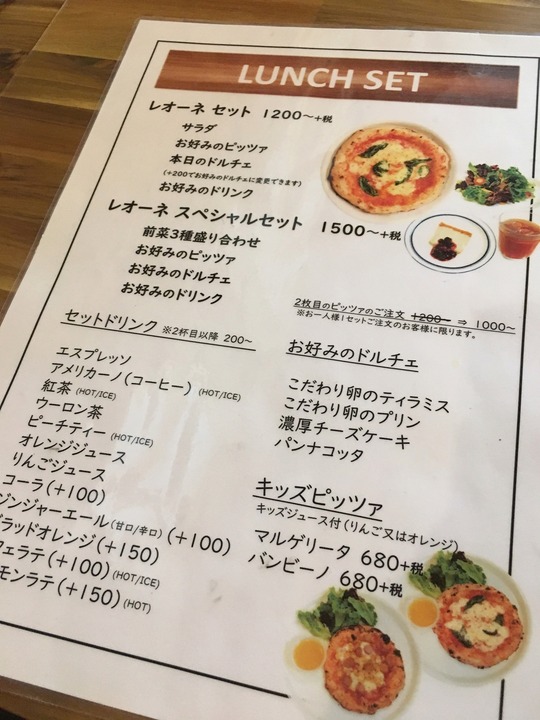 LUNCH SET
レオーネ セット 1200～+税
サラダ
お好みのピッツァ
本日のドルチェ
(+200でお好みのドルチェに変更できます)
お好みのドリンク
レオーネ スペシャルセット 1500～+税
前菜3種盛り合わせ
お好みのピッツァ
お好みのドルチェ
お好みのドリンク
2枚目のピッツァのご注文 +200～ ⇒ 1000～
※お一人様1セットご注文のお客様に限ります。
セットドリンク ※2杯目以降 200～
エスプレッソ
アメリカーノ(コーヒー) (HOT/ICE)
紅茶 (HOT/ICE)
ウーロン茶
ピーチティー (HOT/ICE)
オレンジジュース
りんごジュース
コーラ(+100)
ジンジャーエール(甘口/辛口) (+100)
ラッドオレンジ(+150)
フェラテ(+100) (HOT/ICE)
モンラテ(+150) (HOT)
お好みのドルチェ
こだわり卵のティラミス
こだわり卵のプリン
濃厚チーズケーキ
パンナコッタ
キッズピッツァ
キッズジュース付(りんご又はオレンジ)
マルゲリータ 680+税
バンビーノ 680+税